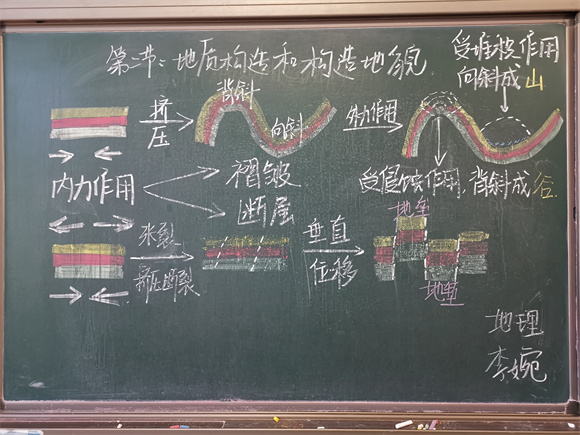 第二节：地质构造和构造地貌
受堆积作用
向斜成山
背斜
向斜
挤
压
外力作用
受侵蚀作用，背斜成谷
内力作用
褶皱
断层
张裂
挤压断裂
垂直
位移
地垒
地堑
地理
李婉